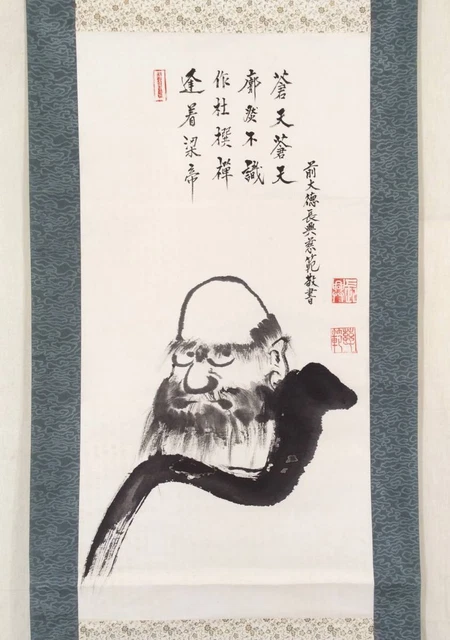 逢着梁帝
作杜撰禪
廓然不識
蒼天蒼天
前大德長興慈範敬書